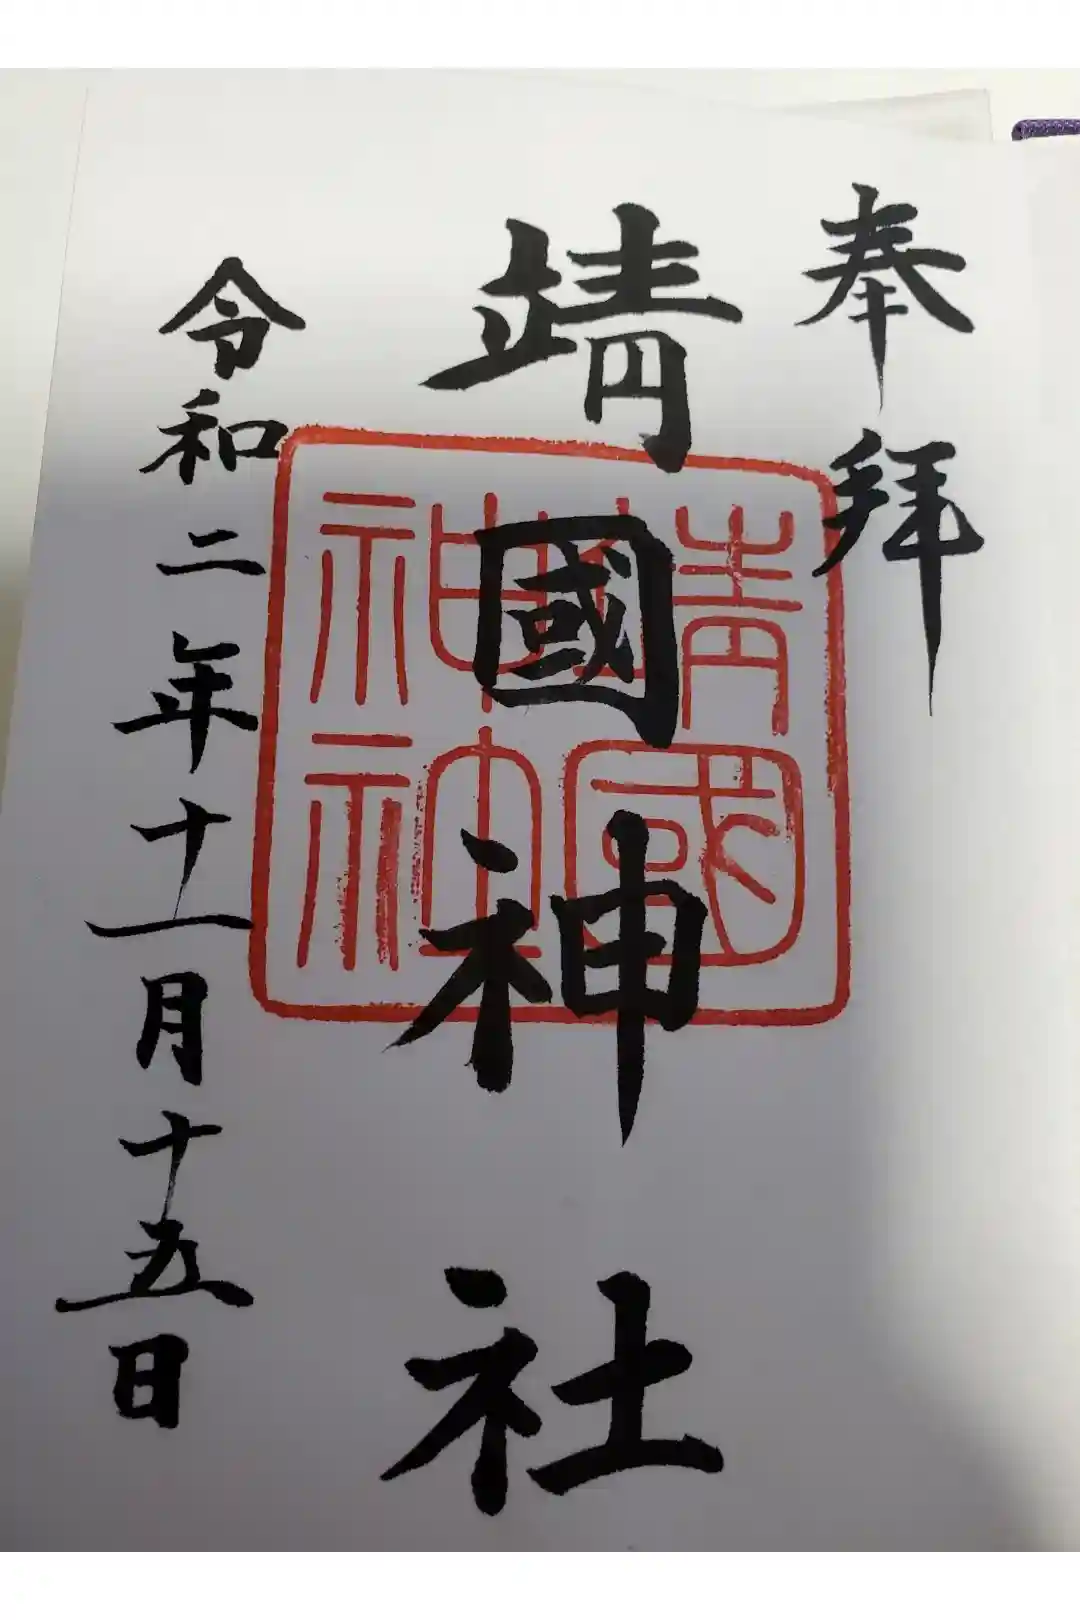 奉拜
靖國神社
靖國神社
令和二年十一月十五日